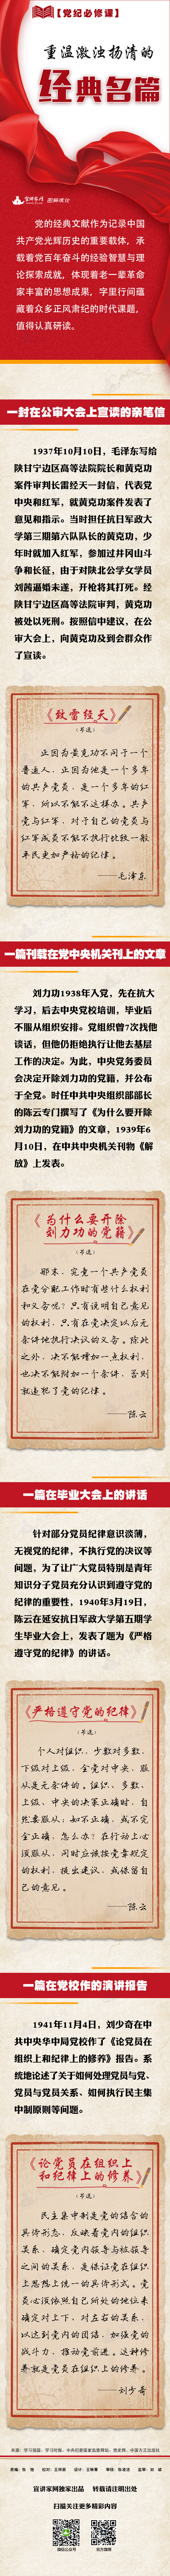 【党纪必修课】
重温激浊扬清的
经典名篇
宣讲家网 图解速论
党的经典文献作为记录中国
共产党光辉历史的重要载体，承
载着党百年奋斗的经验智慧与理
论探索成就，体现着老一辈革命
家丰富的思想成果，字里行间蕴
藏着众多正风肃纪的时代课题，
值得认真研读。
一封在公审大会上宣读的亲笔信
1937年10月10日，毛泽东写给
陕甘宁边区高等法院院长和黄克功
案件审判长雷经天一封信，代表党
中央和红军，就黄克功案件发表了
意见和指示。当时担任抗日军政大
学第三期第六队队长的黄克功，少
年时就加入红军，参加过井冈山斗
争和长征，由于对陕北公学女学员
刘茜逼婚未遂，开枪将其打死。经
陕甘宁边区高等法院审判，黄克功
被处以死刑。按照信中建议，在公
审大会上，向黄克功及到会群众作
了宣读。
《致雷经天》
（节选）
正因为黄克功不同于一个
普通人，正因为他是一个多年
的共产党员，是一个多年的红
军，所以不能不这样办。共产
党与红军，对于自己的党员与
红军成员不能不执行比较一般
平民更加严格的纪律。
——毛泽东
一篇刊载在党中央机关刊上的文章
刘力功1938年入党，先在抗大
学习，后去中央党校培训，毕业后
不服从组织安排。党组织曾7次找他
谈话，但他仍拒绝执行让他去基层
工作的决定。为此，中央党务委员
会决定开除刘力功的党籍，并公布
于全党。时任中共中央组织部部长
的陈云专门撰写了《为什么要开除
刘力功的党籍》的文章，1939年6
月10日，在中共中央机关刊物《解
放》上发表。
《为什么要开除
刘力功的党籍》
（节选）
那末，究竟一个共产党员
在党分配工作时有些什么权利
和义务呢？只有说明自己意见
的权利，只有在党决定以后无
条件地执行决议的义务。除此
之外，决不能增加一点权利，
也决不能附加一个条件，否则
就违犯了党的纪律。
——陈云
一篇在毕业大会上的讲话
针对部分党员纪律意识淡薄，
无视党的纪律，不执行党的决议等
问题，为了让广大党员特别是青年
知识分子党员充分认识到遵守党的
纪律的重要性，1940年3月19日，
陈云在延安抗日军政大学第五期学
生毕业大会上，发表了题为《严格
遵守党的纪律》的讲话。
《严格遵守党的纪律》
（节选）
个人对组织，少数对多数，
下级对上级，全党对中央，服
从是无条件的。组织、多数、
上级、中央的决策正确时，自
然要服从；如不正确，或不完
全正确，怎么办？在行动上必
须服从，同时应该按章规定
的权利，提出建议，或保留自
己的意见。
——陈云
一篇在党校作的演讲报告
1941年11月4日，刘少奇在中
共中央华中局党校作了《论党员在
组织上和纪律上的修养》报告。系
统地论述了关于如何处理党员与党、
党员与党员关系、如何执行民主集
中制原则等问题。
《论党员在组织上
和纪律上的修养》
（节选）
民主集中制是党的结合的
具体形态，反映着党内的组织
关系，确定党内领导与被领导
之间的关系，是保证党在组织
上思想上统一的具体形式。党
员必须依照自己所处的地位来
确定对上下、对左右的关系，
以达到党内的团结，加强党的
战斗力，推动党前进。这种修
养就是党员在组织上的修养。
——刘少奇
宣讲家网独家出品 转载请注明出处
扫描关注更多精彩内容
微信公众号 官方微博